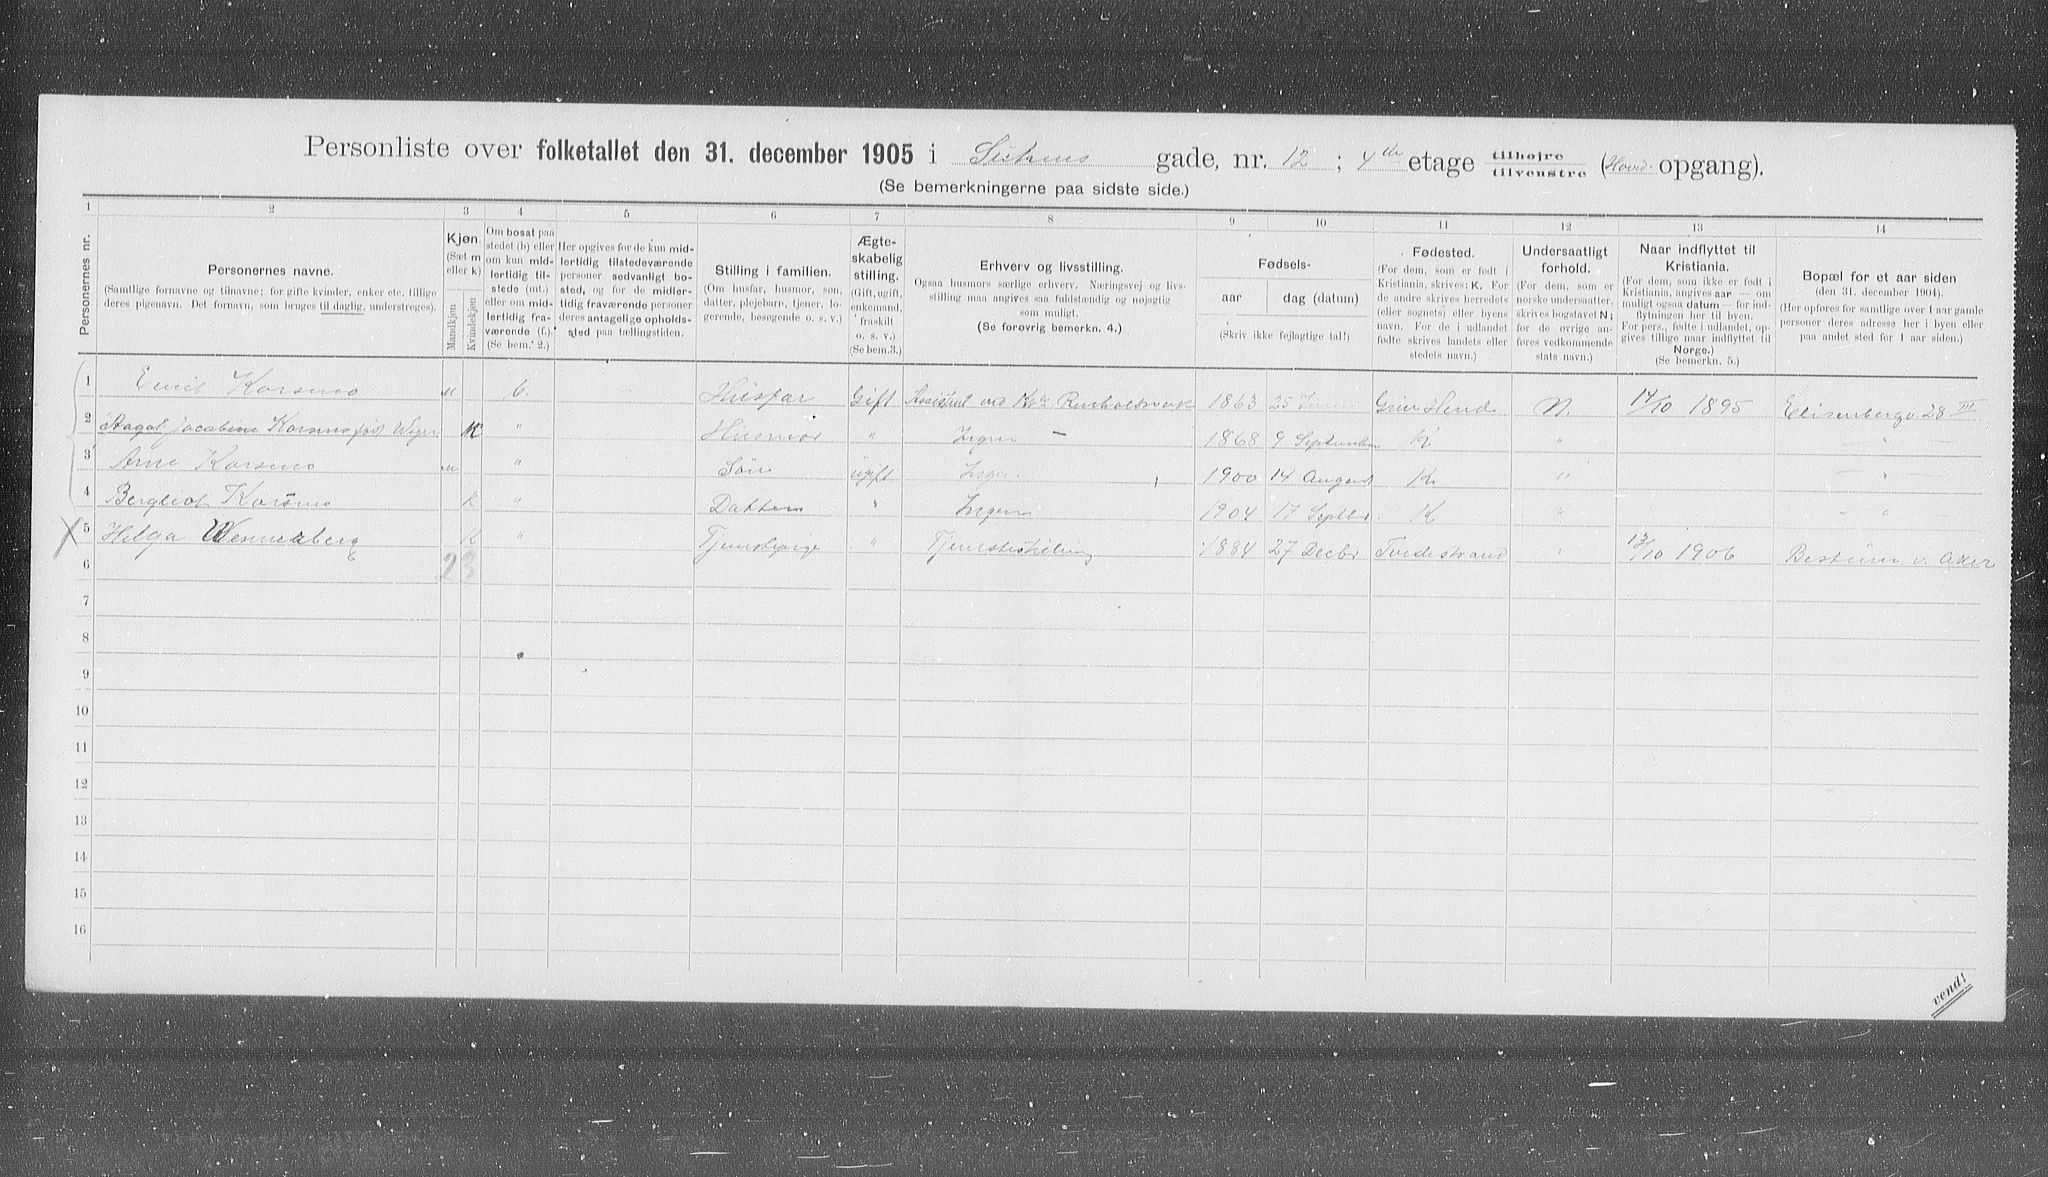 Personliste over folketallet den 31. december 1905 i gade, nr. 12 ; 4de etage tilhøjre tilvenstre (Hoved- opgang).
(Se bemerkningerne paa sidste side.)
1 2 3 4 5 6 7 8 9 10 11 12 13 14
Personernes nr.
Personernes navne.
(Samtlige fornavne og tilnavne; for gifte kvinder, enker etc. tillige
deres pigenavn. Det fornavn, som bruges til daglig, understreges).
Kjøn.
(Sæt m
eller k)
Mandkjøn
Kvindekjøn
Om bosat paa
stedet (b) eller
om kun mid-
lertidig til-
stede (mt.)
eller om mid-
lertidig fra-
værende (f.).
(Se bem. 2.)
Her opgives for de kun mid-
lertidig tilstedeværende
personer sedvanligt bo-
sted, og for de midler-
tidig fraværende personer
deres antagelige opholds-
sted paa tællingstiden.
Stilling i familien.
(Om husfar, husmor, søn,
datter, plejebarn, tjener, lo-
gerende, besøgende o. s. v.)
Ægte-
skabelig
stilling.
(Gift, ugift,
enkemand,
fraskilt
o. s. v.)
(Se bem.3.)
Erhverv og livsstilling.
Ogsaa husmors særlige erhverv. Næringsvej og livs-
stilling maa angives saa fuldstændig og nøjagtig
som muligt.
(Se forøvrig bemerkn. 4.)
Fødsels-
aar dag (datum)
(Skriv ikke fejlagtige tal!)
Fødested.
(For dem, som er født i
Kristiania, skrives: K. For
de andre skrives herredets
(eller sognets) eller byens
navn. For de i udlandet
fødte skrives landets eller
stedets navn.)
Undersaatligt
forhold.
(For dem, som er
norske undersaatter,
skrives bogstavet N;
for de øvrige an-
føres vedkommende
stats navn.)
Naar indflyttet til
Kristiania.
(For dem, som ikke er født i
Kristiania, angives aar — om
muligt ogsaa datum — for ind-
flytningen her til byen.
For pers., fødte i udlandet, op-
gives tillige naar indflyttet til
Norge.)
(Se bemerkn. 5.)
Bopæl for et aar siden
(den 31. december 1904).
(Her opføres for samtlige over 1 aar gamle
personer deres adresse her i byen eller
paa andet sted for 1 aar siden.)
1 Emil Korsmo m b. Husfar Gift Assistent ved Renholdsverk 1863 25 N. 17/10 1895 Elisenbergv 28 III
2 Aagot Jacobine Korsmo født K " Husmor " Ingen — 1868 9 September K " — " —
3 Arne Korsmo m " Søn ugift Ingen 1900 14 August K " — " —
4 Bergliot Korsmo K " Datter " Ingen 1904 17 Septbr. K " "
5 Helga Wennerberg K " Tjenestepige " Tjenestestilling 1884 27 Decbr Tvedestrand " 13/10 1906 Bestum v. Aker
6 2 3
7
8
9
10
11
12
13
14
15
16
vend!